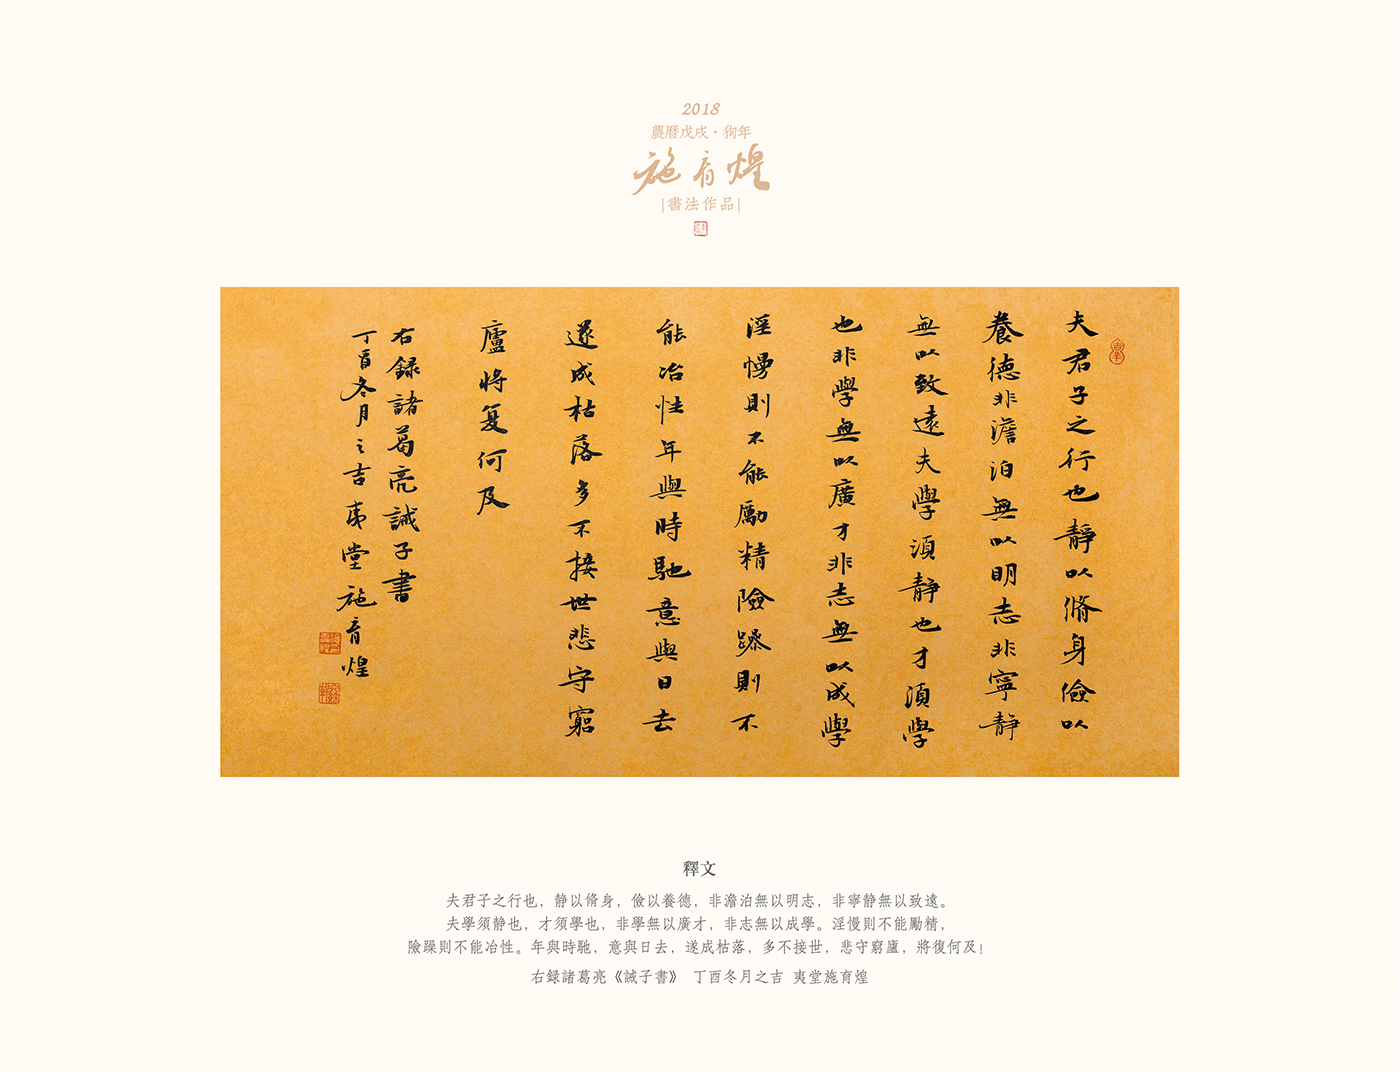 2018
農曆戊戌·狗年
施育煌
|書法作品|
夫君子之行也靜以脩身儉以
養德非澹泊無以明志非寧靜
無以致遠夫學須靜也才須學
也非學無以廣才非志無以成學
淫慢則不能勵精險躁則不
能冶性年與時馳意與日去
遂成枯落多不接世悲守窮
廬將复何及
右録諸葛亮誡子書
丁酉冬月之吉夷堂施育煌
釋文
夫君子之行也，静以脩身，儉以養德，非澹泊無以明志，非寧静無以致遠。
夫學須静也，才須學也，非學無以廣才，非志無以成學。淫慢則不能勵精，
險躁則不能冶性。年與時馳，意與日去，遂成枯落，多不接世，悲守窮廬，將復何及！
右録諸葛亮《誡子書》 丁酉冬月之吉 夷堂施育煌